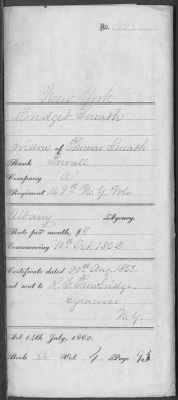 No.
New York
Bridget Sneath
Widow of Thomas Sneath
Rank Private
Company "A"
Regiment 149th N.Y. Vols
Albany Agency.
Rate per month, $8
Commencing 10th Oct 1862
Certificate dated 20th Aug. 1863.
and sent to Trowbridge,
Syracuse
N.Y.
Act 14th July, 1862.
Book A Vol. 4 Page 93